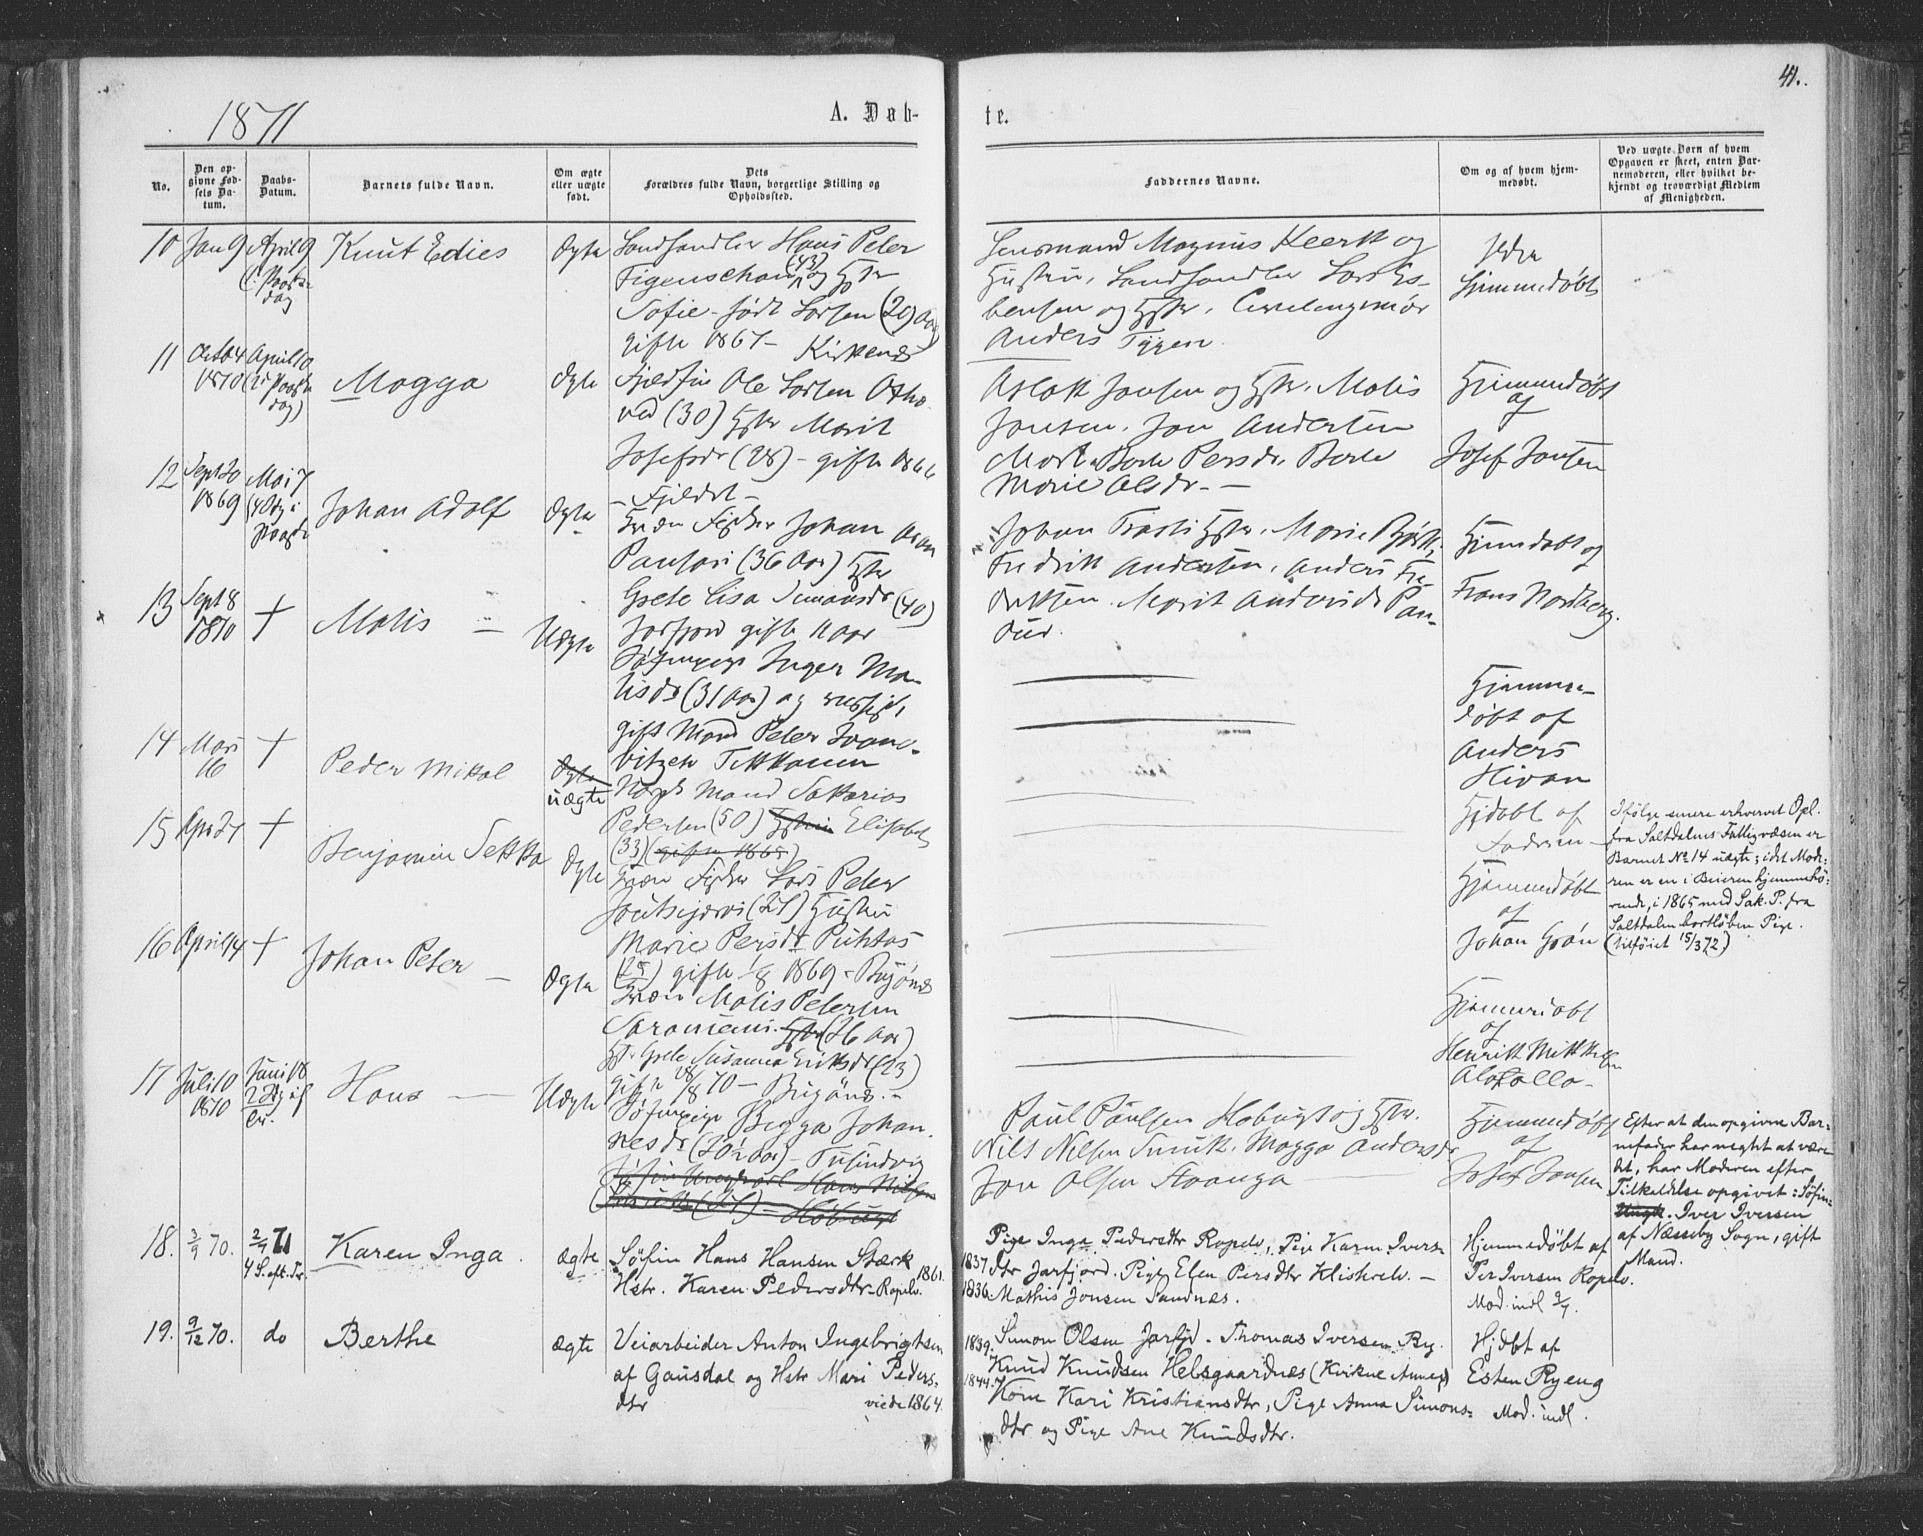 41.
1871
A. Døb-
te.
No.
Den op-
givne Fød-
sels Da-
tum.
Daabs-
Datum.
Barnets fulde Navn.
Om ægte
eller uægte
født.
Dets
Forældres fulde Navn, borgerlige Stilling og
Opholdssted.
Faddernes Navne.
Om og af hvem hjem-
medøbt.
Ved uægte Børn af hvem
Opgaven er skeet, enten Bar-
nemoderen, eller hvilket be-
kjendt og troværdigt Medlem
af Menigheden.
10
Jan 9
April 9
Paaske
dag
Knut Edies
Ægte
Landhandler Hans Peter
Figenschau (43) og Hstr
Sofie født Larsen (20) Aar
gifte 1867 - Kirkenes
Lensmand Magnus Keerk og
Hustru, Landhandler Lars Es-
bensen og Hstr,
Anders
Hjemmedøbt
11
1870
April 10
(2 Paaske
dag)
Magga
Ægte
Fjeldfin Ole Larsen
(30) Hstr Marit
Josefsdr (28) - gifte 1866
- Fjeldet -
Aslak Jonsen og Hstr, Malis
Jonsen, Jon Andersen
Persdr, Berte
Marie Olsdr. -
Hjemmedøbt
af
Josef Jonsen
12
Sept 20
1869
Mai 7
Johan Adolf
Ægte
Kvæn Fisker Johan
(36 Aar) Hstr
Grete Lisa Simonsdr (40)
Jarfjord gifte 11 Aar
Johan Hstr, Marie
Fredrik Andersen, Anders Fre-
driksen, Marit Andersdr
Hjemdøbt og
Frans Nordberg.
13
Sept 8
1870
+
Malis —
Uægte
Søfinpige Inger Ma-
tisdr (31 Aar) og russisk,
gift Mand Peter Ivano-
vitzch
Hjemme-
døbt af
Anders
Hivan
14
16
+
Peder Mikal
Ægte
uægte
Norsk Mand Sakarias
Pedersen (50) Hstrin Elisabet
(33) (gifte 1865)
Hjdøbt af
Fadrien -
Ifølge senere erhvervet Opl.
fra Saltdalens Fattigvæsen er
Barnet No 14 uægte; idet Mode-
ren er en i Beieren hjemmehö-
rende, i 1865 med Sak. P. fra
Saltdalen bortløben Pige.
(tilføiet 15/3 72)
15
+
Benjamin Sekka
Ægte
Kvæn Fisker Lars Peter
Hustru
Marie Persdr Puhtas
(25) gifte 1/8 1869 - Bugönes
Hjemmedøbt
af
Johan Grøn
16
April 14
+
Johan Peter —
Ægte
Kvæn Matis Petersen
Hstr (26 Aar)
Hstr Grete Susanna Eriksdr (23)
gifte 28/8 70 — Bugönes. -
Hjemmedöbt
af
Henrik Mikkelsen
17
Juli 10
1870
Juni 18
Hans —
Uægte
Søfinpige Bigga Johan-
nesdr (20½ Aar) -
Hans Nilsen
Paul Paulsen Hstr.
Nils Nilsen Magga Andersdr
Jon Olsen
Hjemmedøbt
af
Josef Jonsen
Efter at den opgivne Bar-
nefader har negtet at være
det, har Moderen efter
Tilkaldelse opgivet: Søfin-
Ungk. Iver Iversen
af Næsseby Sogn, gift
Mand.
18.
3/9 70.
2/7 71
4 S. eft. Tr.
Karen Inga.
ægte
Søfin Hans Hansen Stærk
Hstr. Karen Pedersdtr - Ropelv. 1861.
Pige Inga Pedersdtr Ropelv, Pige Karen Ivers-
1837
dtr Jarfjord. Pige Elen Persdtr Klistrelv. —
1836.
Mathis Jonsen Sandnæs.
Hjemmedøbt af
Per Iversen Ropelv.
Mod. indl 2/7.
19.
9/12 70.
do
Berthe
ægte
Veiarbeider Anton Ingebrigtsen
af Gausdal og Hstr Mari Peders-
dtr viede 1864.
1839.
Simon Olsen Jarfjd. Thomas Iversen
Knud Knudsen Helsgaardnæs (Kirkne Annex)
1844.
Kone Kari Kristiansdtr, Pige Anna Simons-
dtr og Pige Ane Knudsdtr.
Hjdbt af
Esten Ryeng
Mod. indl.